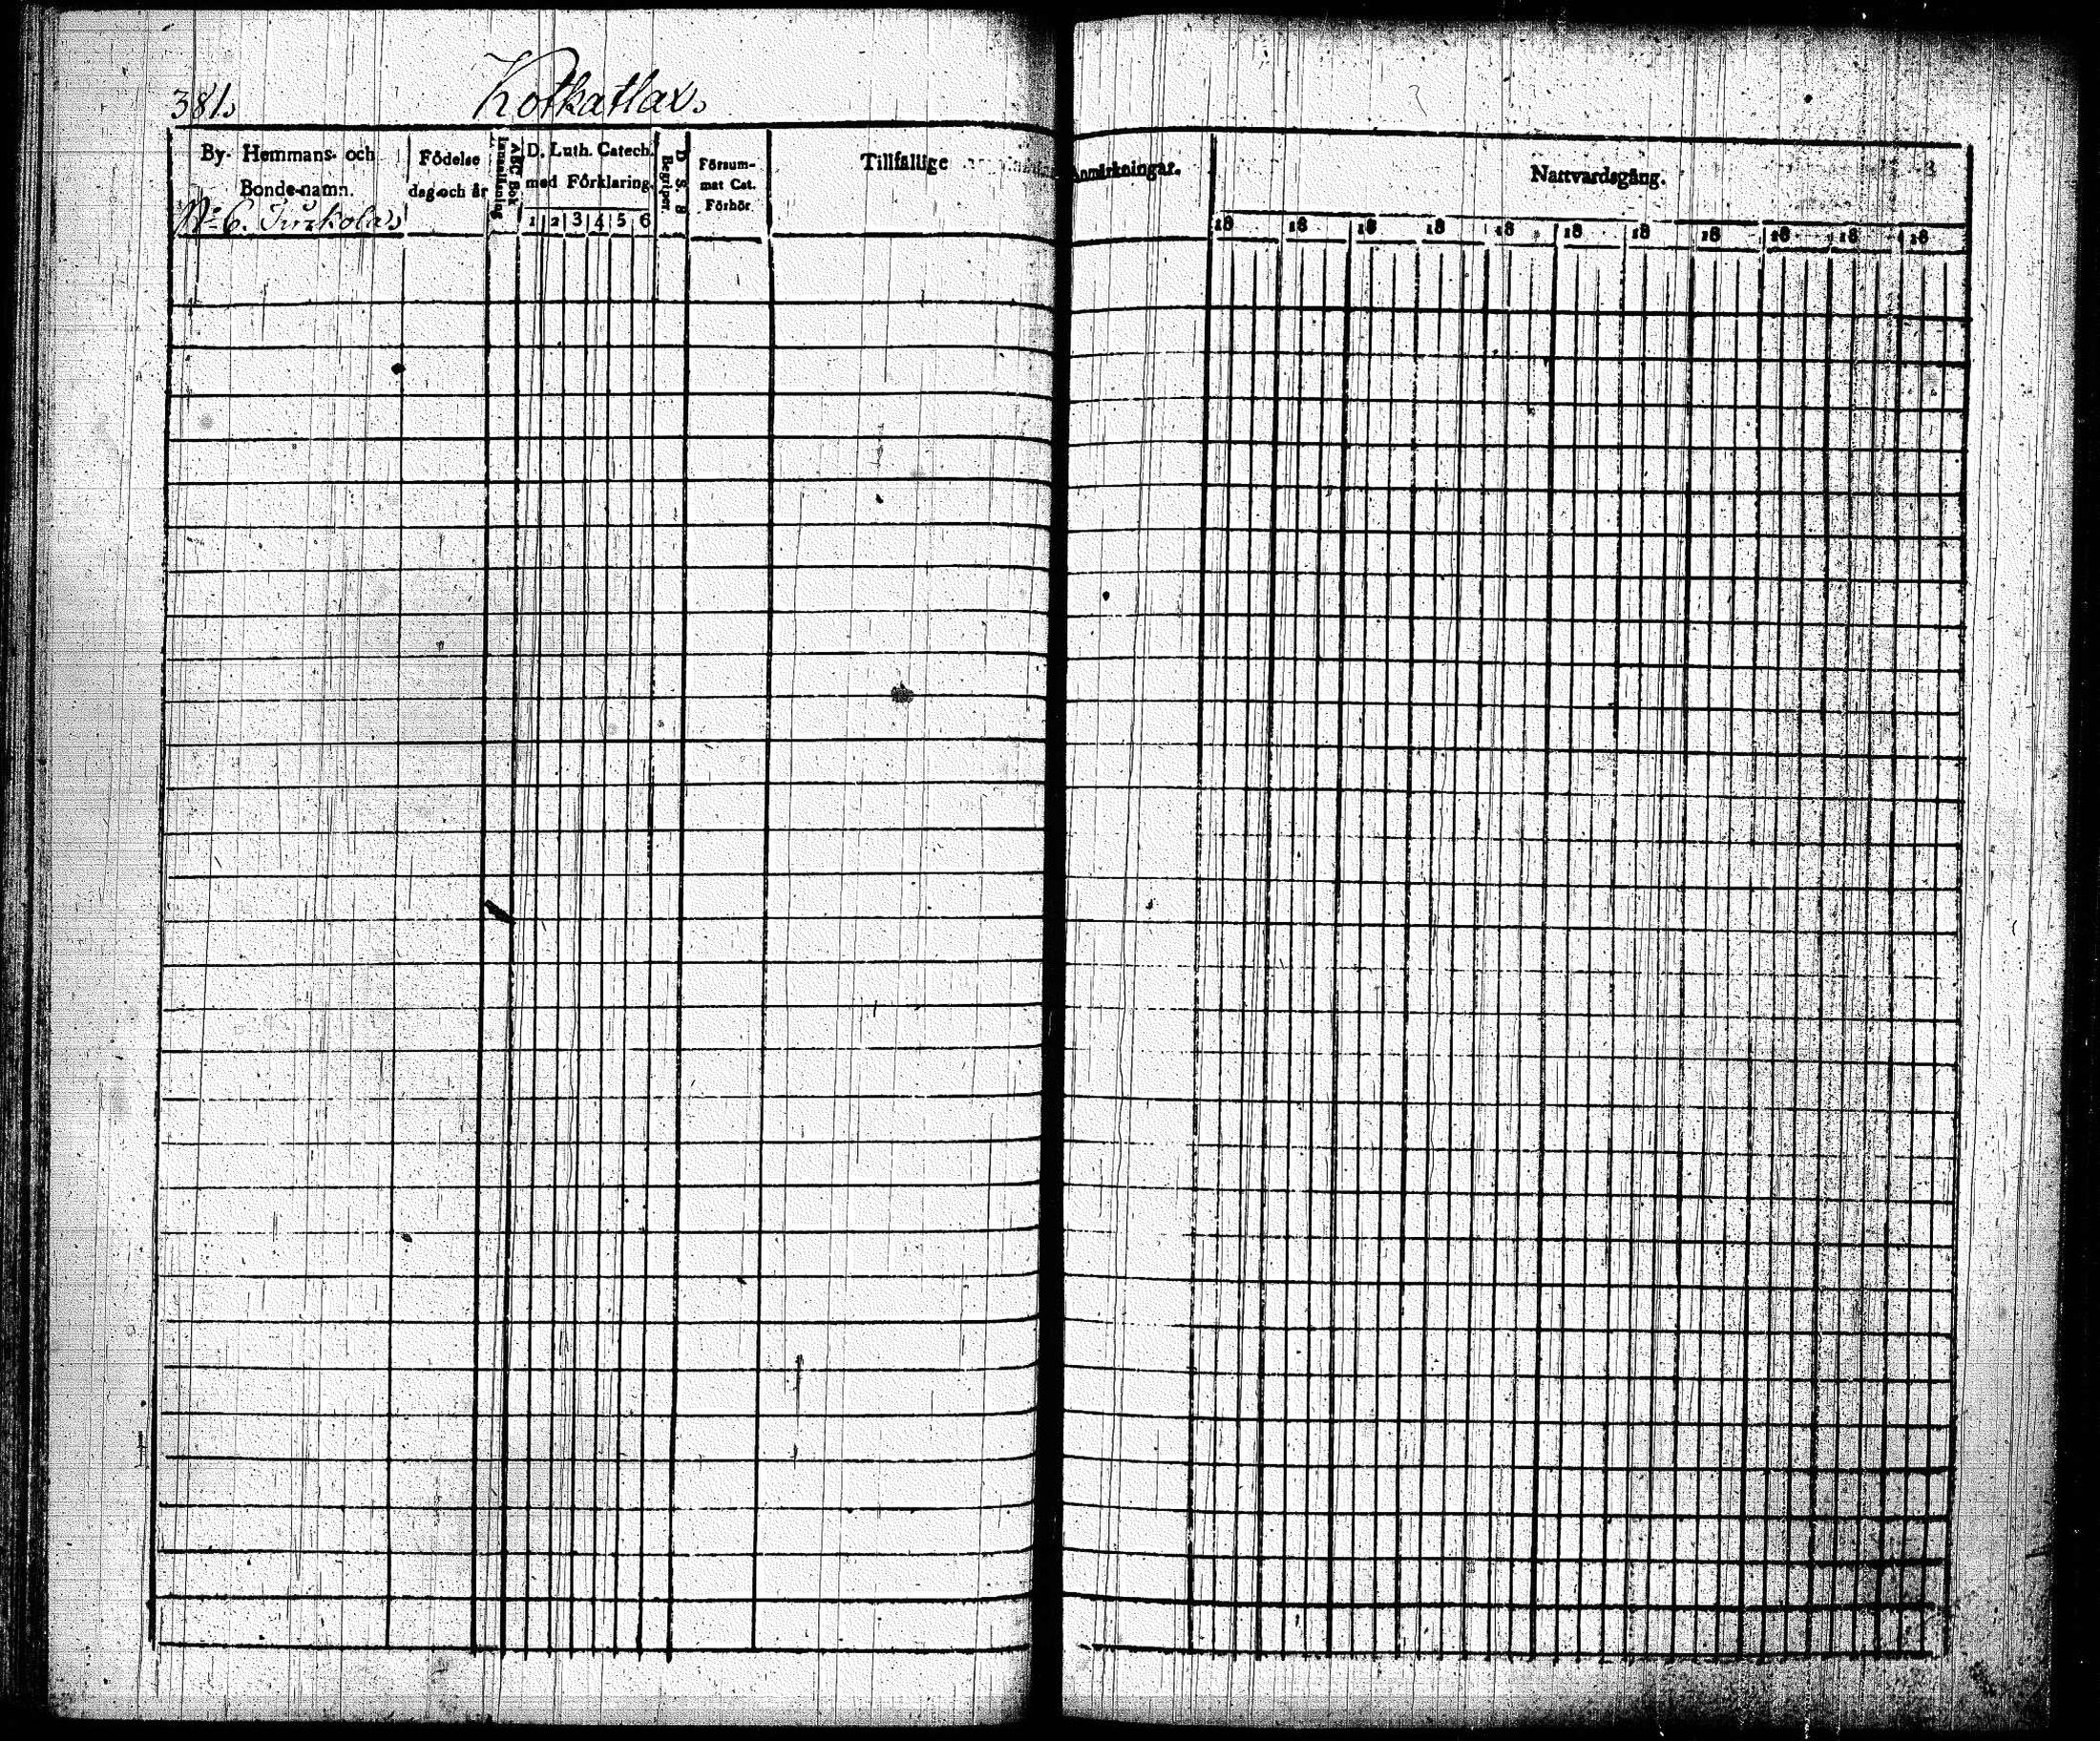 381.
Kotkatlax.
By- Hemmans- och
Bonde-namn.
No 6. Turkola
Födelse
dag och år
Innanläsning
ABC Bok
D. Luth. Catech.
med Förklaring.
1 2 3 4 5 6
D. S. S.
Begriper.
Försum-
mat Cat.
Förhör
Tillfällige
Anmärkningar.
Nattvardsgång.
18 18 18 18 18 18 18 18 18 18 18